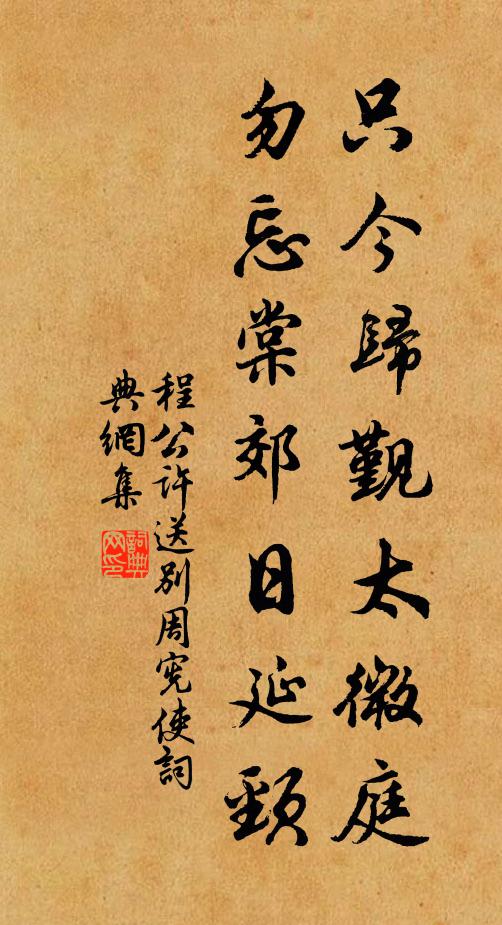 只今歸覲太微庭
勿忘棠郊日延頸
程公許送別周憲使詞
典網集
詞典網印